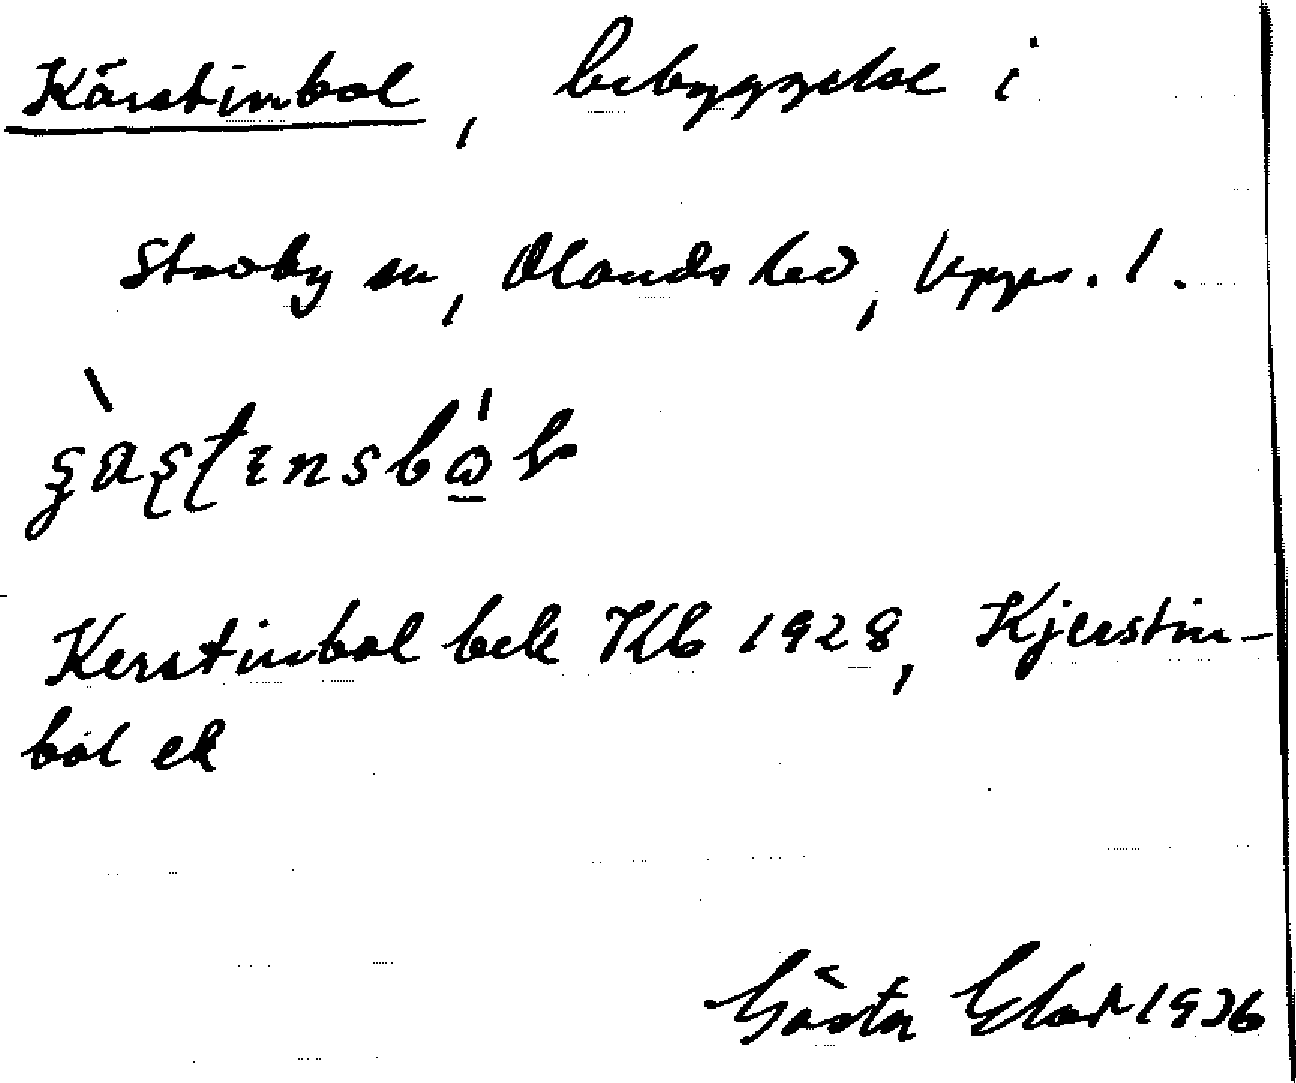 Kärstinbol, bebyggelse i
Stavby sn, Olands hd, Upps. l.
Kerstinbol bek Kb 1928, Kjerstin-
bol ek
Gösta Elar 1936